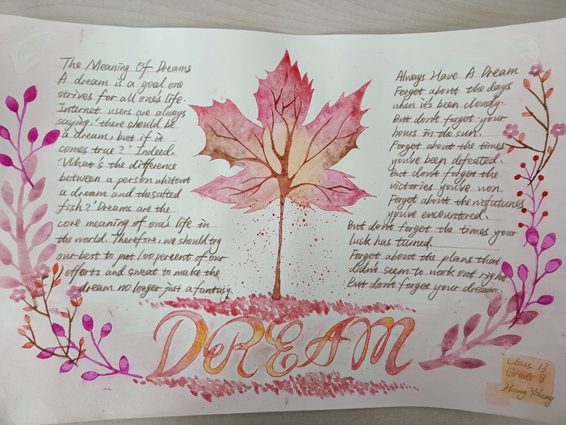 The Meaning Of Dreams
A dream is a goal one
strives for all one's life.
Internet users are always
saying "there should be
a dream, but if it
comes true?" Indeed,
"What's the difference
between a person without
a dream and the salted
fish?" Dreams are the
core meaning of one's life in
the world. Therefore, we should try
our best to put 100 percent of our
efforts and sweat to make the
dream no longer just a fantasy.
Always Have A Dream
Forget about the days
when it's been cloudy.
But don't forget your
hours in the sun.
Forget about the times
you've been defeated.
But don't forget the
victories you've won.
Forget about the misfortunes
you've encountered.
But don't forget the times your
luck has turned
Forget about the plans that
didn't seem to work out right
But don't forget your dream.
DREAM
Class 13
Grade 8
Huang